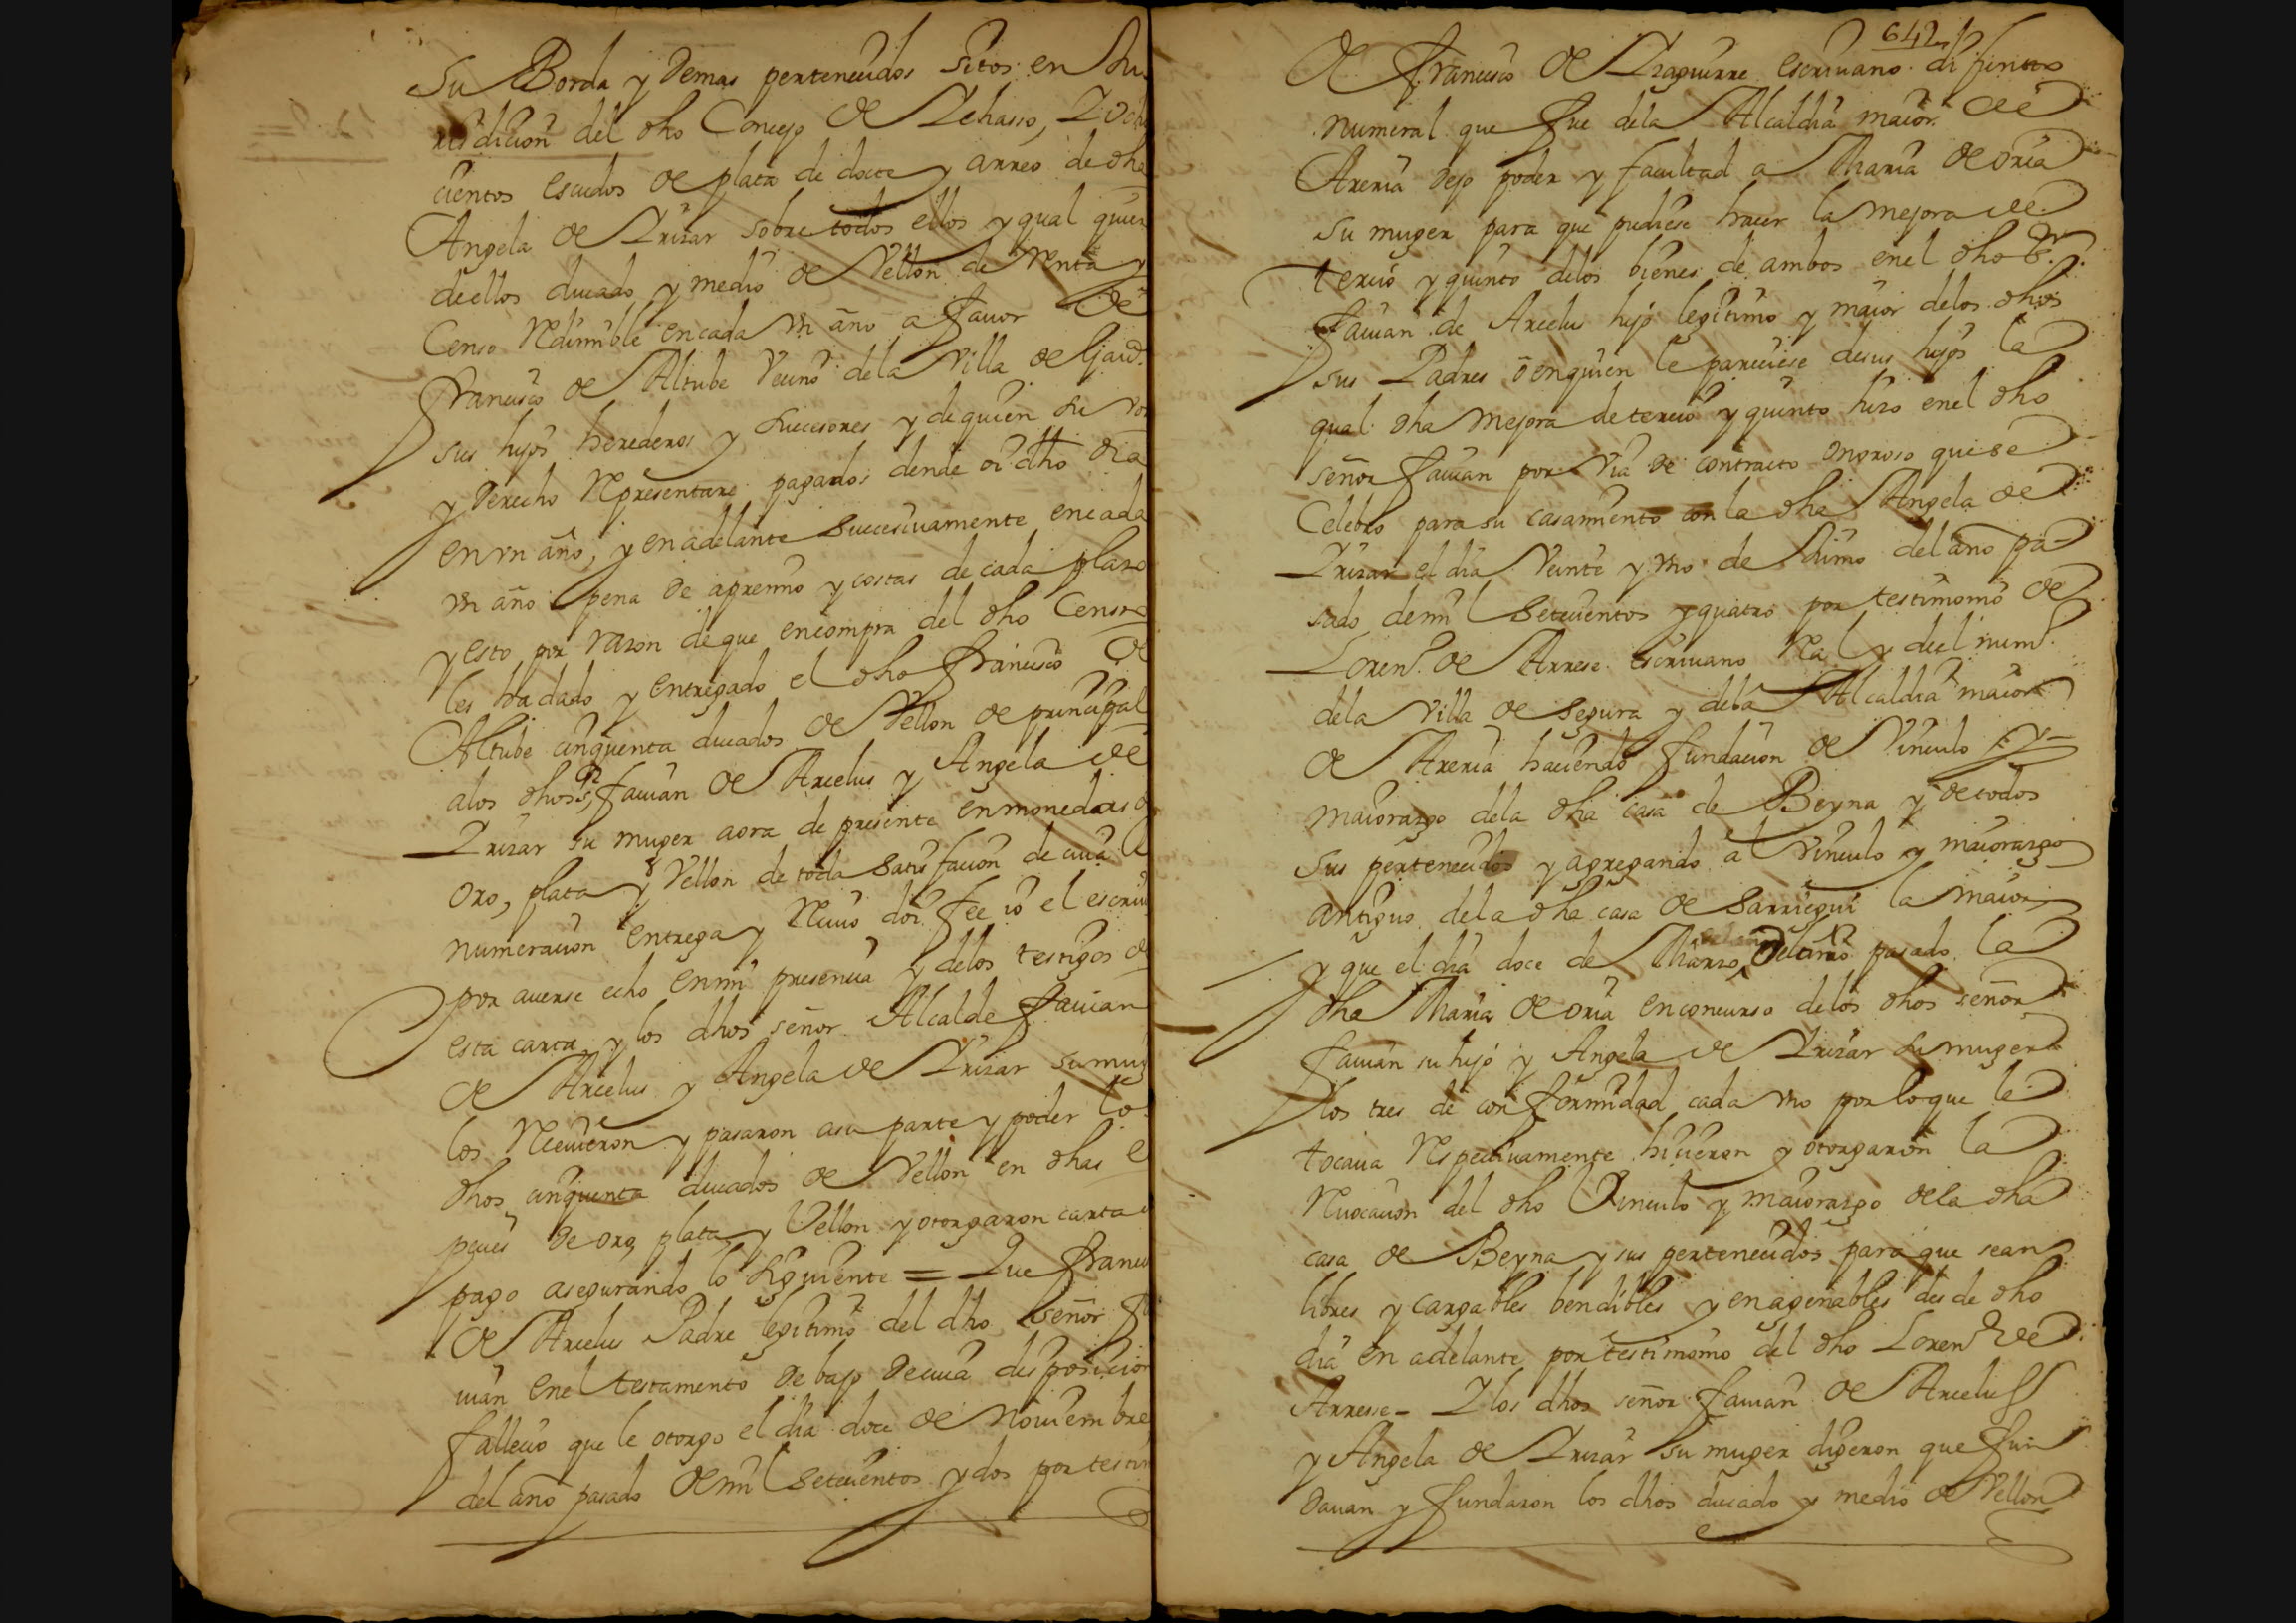 Su Borda y demas pertenecidos sitos en Ju
risdicion del dho Concejo de Ichasso, Y Och
cientos escudos de plata de docte y arreo de dha
Angela de Irizar sobre todos ellos y qual quier
de ellos ducado y medio de Vellon de Renta y
Censo Redimible en cada vn año a fauor de
Francisco de Altube Vecino de la Villa de
sus hijos herederos y subcesores y de quien su voz
y derecho Representare pagados dende oi dho dia
en vn año, y en adelante Succesiuamente en cada
vn año pena de apremio y costas de cada plazo
y esto por razon de que en compra del dho Censo
les ha dado y entregado el dho Francisco de
Altube cinquenta ducados de Vellon de principal
a los dhos Sr Fauian de Arcelus y Angela de
Irizar su muger aora de presente en monedas de
oro, plata y Vellon de toda satisfacion de cuia
numeracion entrega y Reciuo doi fee io el escriu
por auerse echo en mi presencia y de los testigos de
esta carta y los dhos señor Alcalde Fauian
de Arcelus y Angela de Irizar su mug
los Reciuieron y pasaron a su parte y poder lo
dhos cinquenta ducados de Vellon en dhas es
pecies de oro plata y Vellon y otorgaron carta d
pago asegurando lo siguiente = Que Francis
de Arcelus Padre legitimo del dho señor Fa
uian en el testamento debajo de cuia disposicion
fallecio que le otorgo el dia doce de Nouiembre
del año pasado de mil Setecientos y dos por testim
642
de Francisco de Izaguirre escriuano difunto
numeral que fue de la Alcaldia maior de
Areria dejo poder y facultad a Maria de Oria
su muger para que pudiese hacer la mejora de
tercio y quinto de los bienes de ambos en el dho Sr
Fauian de Arcelus hijo legitimo y maior de los dhos
sus Padres o en quien le pareciese de sus hijos la
qual dha mejora de tercio y quinto hizo en el dho
señor Fauian por via de contracto onoroso que se
Celebro para su casamiento con la dha Angela de
Irizar el dia Veinte y vno de Junio del año pa
sado de mil Setecientos y quatro por testimonio de
Lorenº de Arrese escriuano Real y de el numº
de la Villa de Segura y de la Alcaldia maior
de Areria haciendo fundacion de Vinculo y
maiorazgo de la dha casa de Beyna y de todos
sus pertenecidos y agregando al Vinculo y maiorazgo
antiguo de la dha casa de Sarriegui la maior
y que el dia doce de Marzo vltimo pasado la
dha Maria de Oria en concurso de los dhos señor
Fauian su hijo y Angela de Irizar su muger
los tres de conformidad cada vno por lo que le
tocaua Respectiuamente hicieron y otorgaron la
Reuocacion del dho Vinculo y maiorazgo de la dha
casa de Beyna y sus pertenecidos para que sean
libres y cargables bendibles y enagenables desde dho
dia en adelante por testimonio del dho Lorenº de
Arrese - Y los dhos señor Fauian de Arcelus
y Angela de Irizar su muger digeron que fun
dauan y fundaron los dhos ducado y medio de Vellon